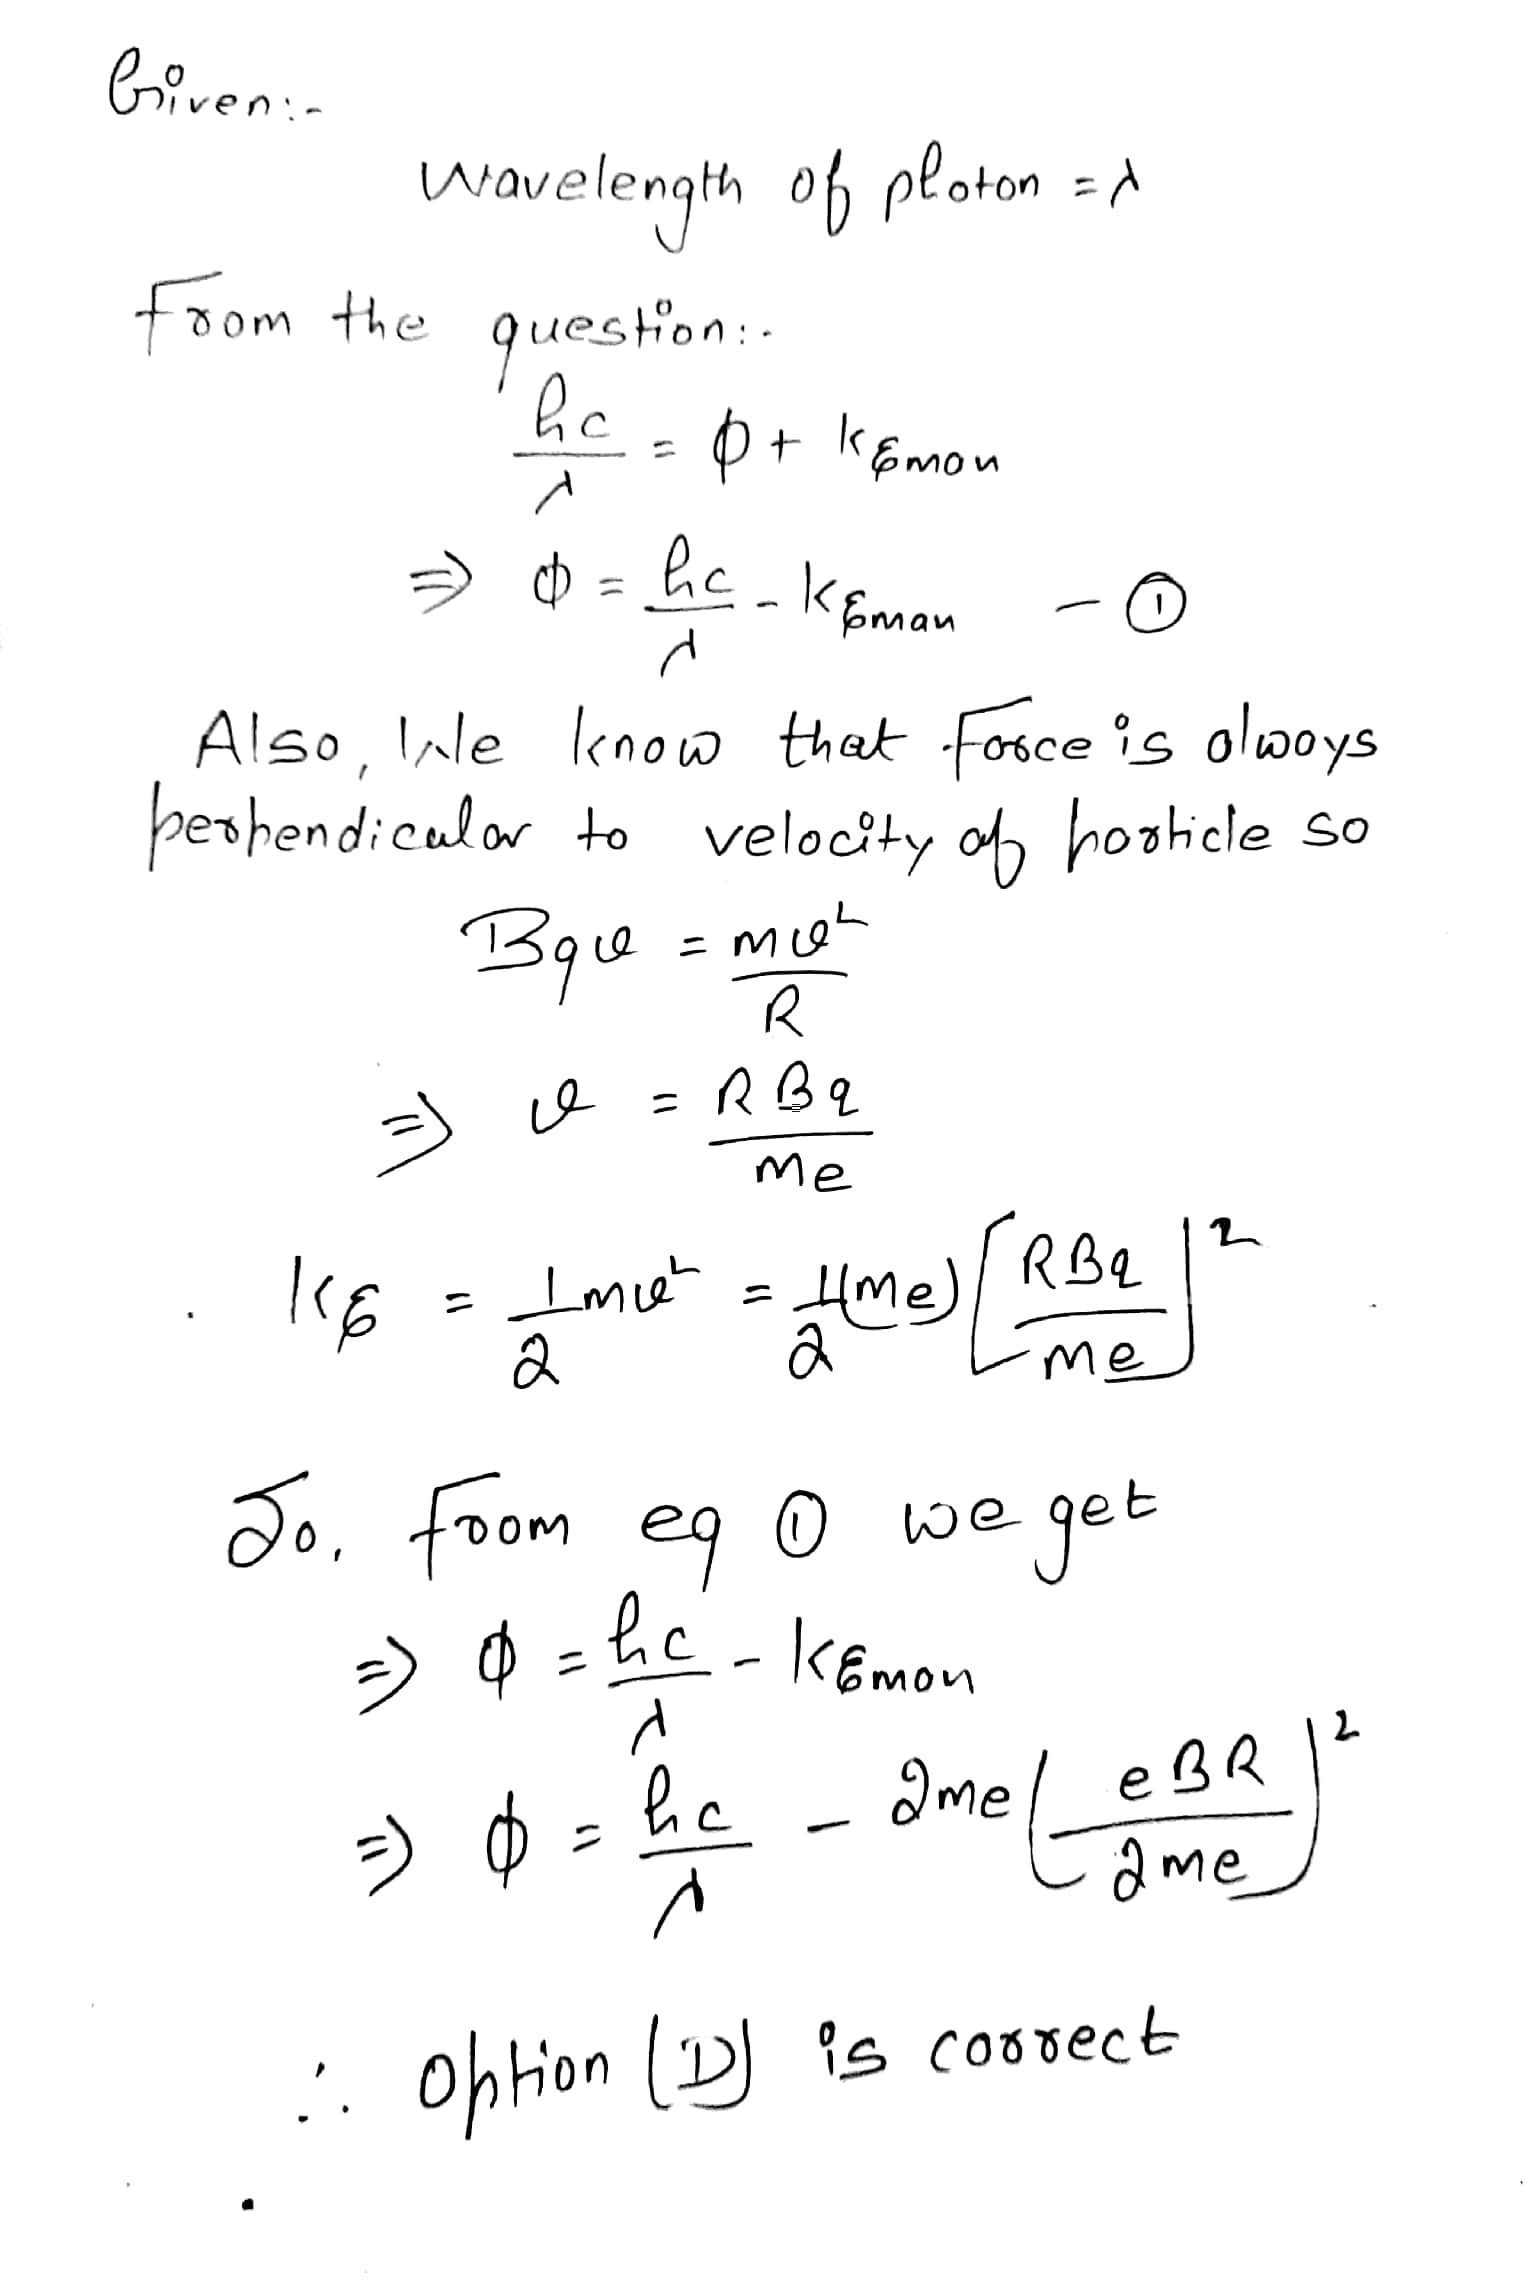 Given:-
Wavelength of photon = λ
From the question:-
hc/λ = ϕ + KEmax
⇒ ϕ = hc/λ - KEmax - ①
Also, We know that force is always
perpendicular to velocity of particle so
Bqv = mv²/R
⇒ v = RBq/me
KE = 1/2 mv² = 1/2 (me) [RBq/me]²
So, from eq ① we get
⇒ ϕ = hc/λ - KEmax
⇒ ϕ = hc/λ - 2me [eBR/2me]²
∴ Option (D) is correct